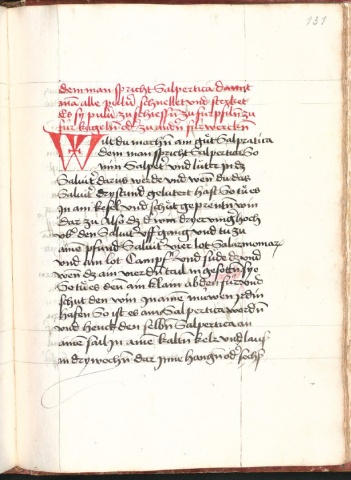 131
dem man spricht Salpertica damit
man alle puluer schnellet und sterket
Es sy puluer zu schiessen zu fürpfilen zu
für kugeln od zu andern fürwercken
Wilt du machen ain gůt Salpratica
dem man spricht Salpertica So
nim Salpeter und lüter in dz
Saluiter darus werde und wen du das
Saluiter drystund gelutert hast So tů es
in ain kessel und schüt geprenten win
dar zů Also dz d win dryer ving hoch
ob den Saluiter uff gang und tů zu
aine pfund Saluiter vier lot Salarmoniax
und ain lot Campfer und süde dz und
wen dz ain vierdentail ingesotten sye
So tů es den ain klain ab dem für und
schüt den win in aine nüwen irdin
hafen So ist es ain Salpertica worden
und henck den selben Salpertica an
aine sail in aine kalten keler und lauss
in dry wochen dar inne hangen od sechs